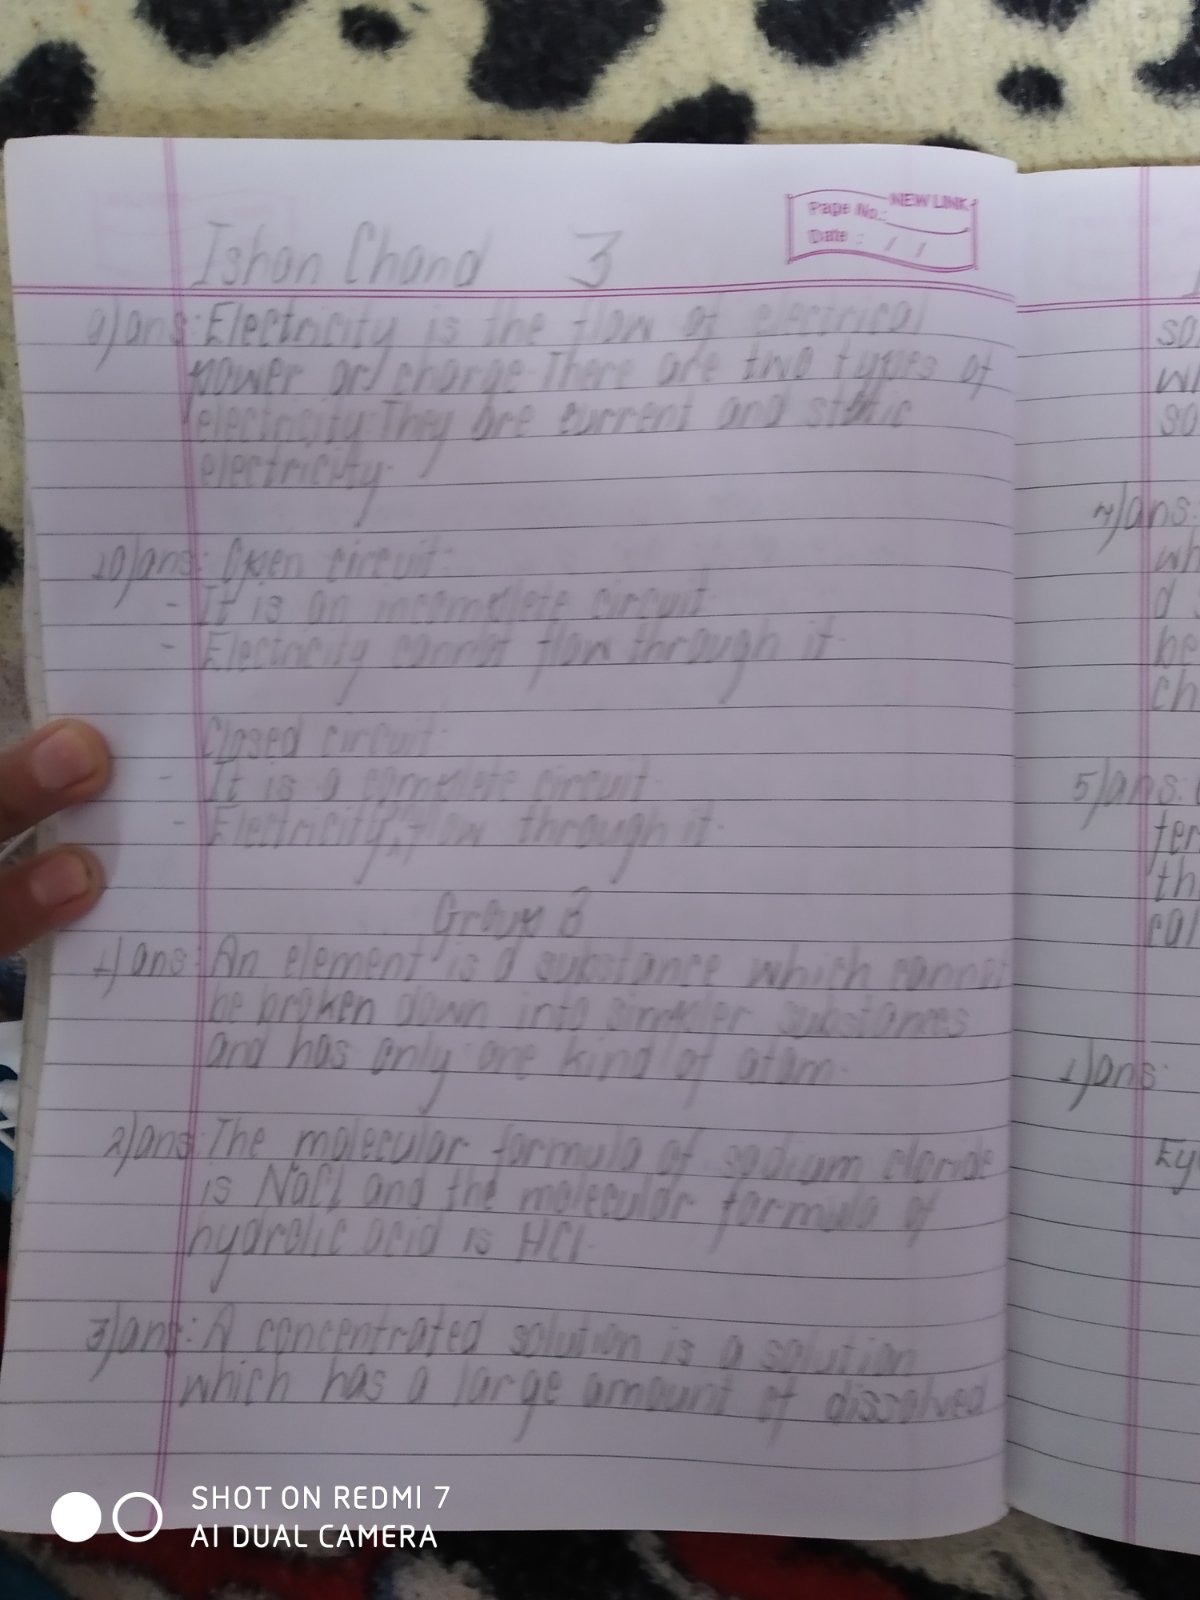 NEW LINK
Page No.:
Date : / /
Ishan Chand 3
9)ans: Electricity is the flow of electrical
power or charge. There are two types of
electricity. They are current and static
electricity.
10)ans: Open circuit:
- It is an incomplete circuit.
- Electricity cannot flow through it.
Closed circuit:
- It is a complete circuit.
- Electricity flow through it.
Group B
1)ans: An element is a substance which cannot
be broken down into simpler substances
and has only one kind of atom.
2)ans: The molecular formula of sodium cloride
is NaCl and the molecular formula of
hydrolic acid is HCl.
3)ans: A concentrated solution is a solution
which has a large amount of dissolved
4)ans:
5)ans:
1)ans:
SHOT ON REDMI 7
AI DUAL CAMERA